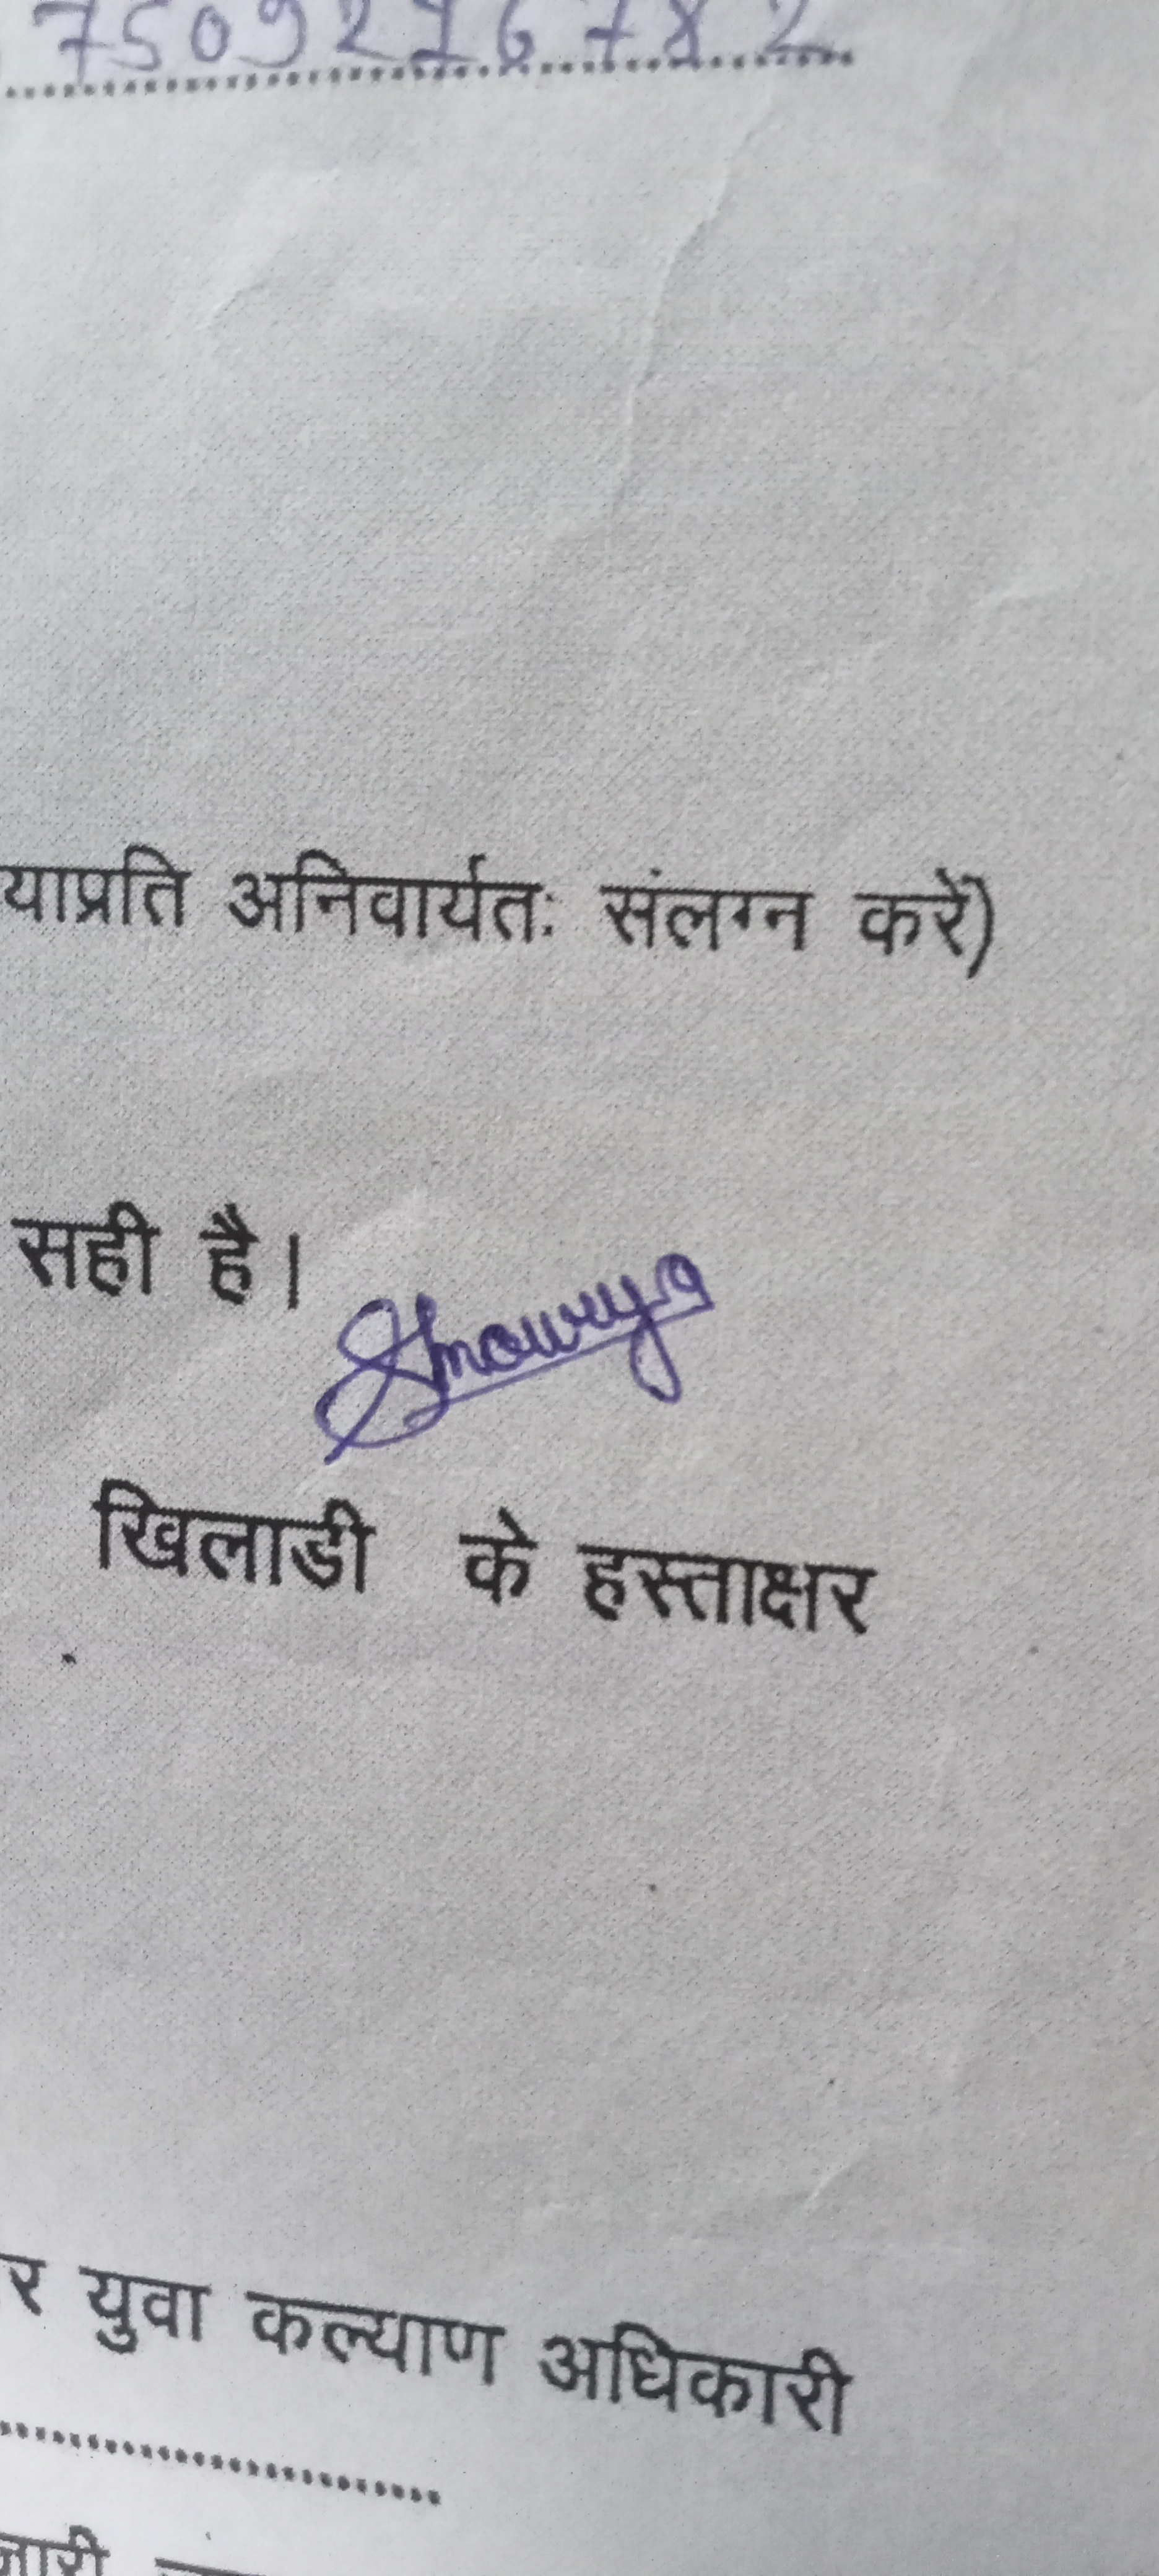 7509276782
याप्रति अनिवार्यतः संलग्न करें)
सही है।
खिलाडी के हस्ताक्षर
र युवा कल्याण अधिकारी